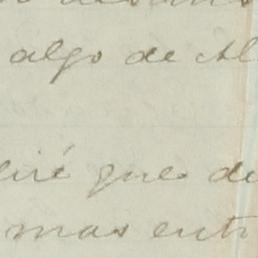 algo de Al
iré que de
mas entr